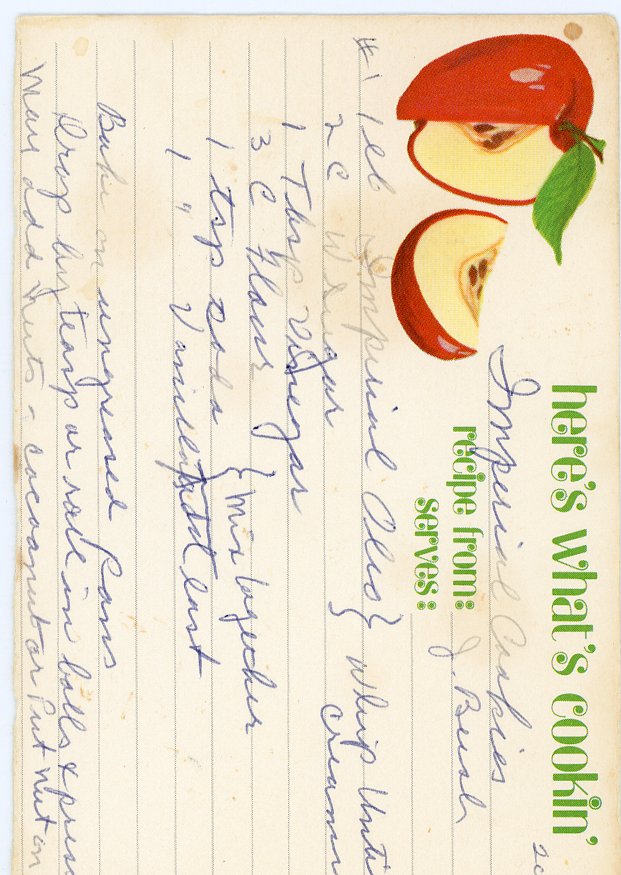 here's what's cookin'
Imperial Cookies
recipe from: J. Bush
serves:
#1 1 lb Imperial Oleo } Whip Until
2 C W Sugar Cream
1 Tbsp Vinegar
3 C Flour } Mix together
1 tsp soda
1 " Vanilla Add last
Bake on ungreased Pans
Drop by teasp or roll in balls & press
May add Nuts - cocoanut or Put nut on